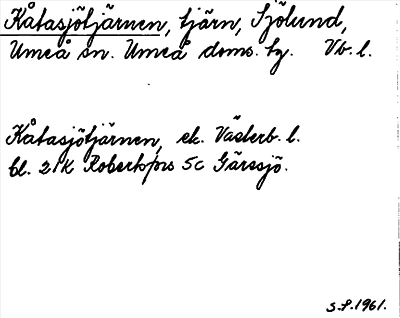 Kåtasjötjärnen, tjärn, Sjölund,
Umeå sn. Umeå doms. tg. Vb. l.
Kåtasjötjärnen, ek. Västerb. l.
bl. 21K Robertsfors 5c Gärssjö.
S.P. 1961.